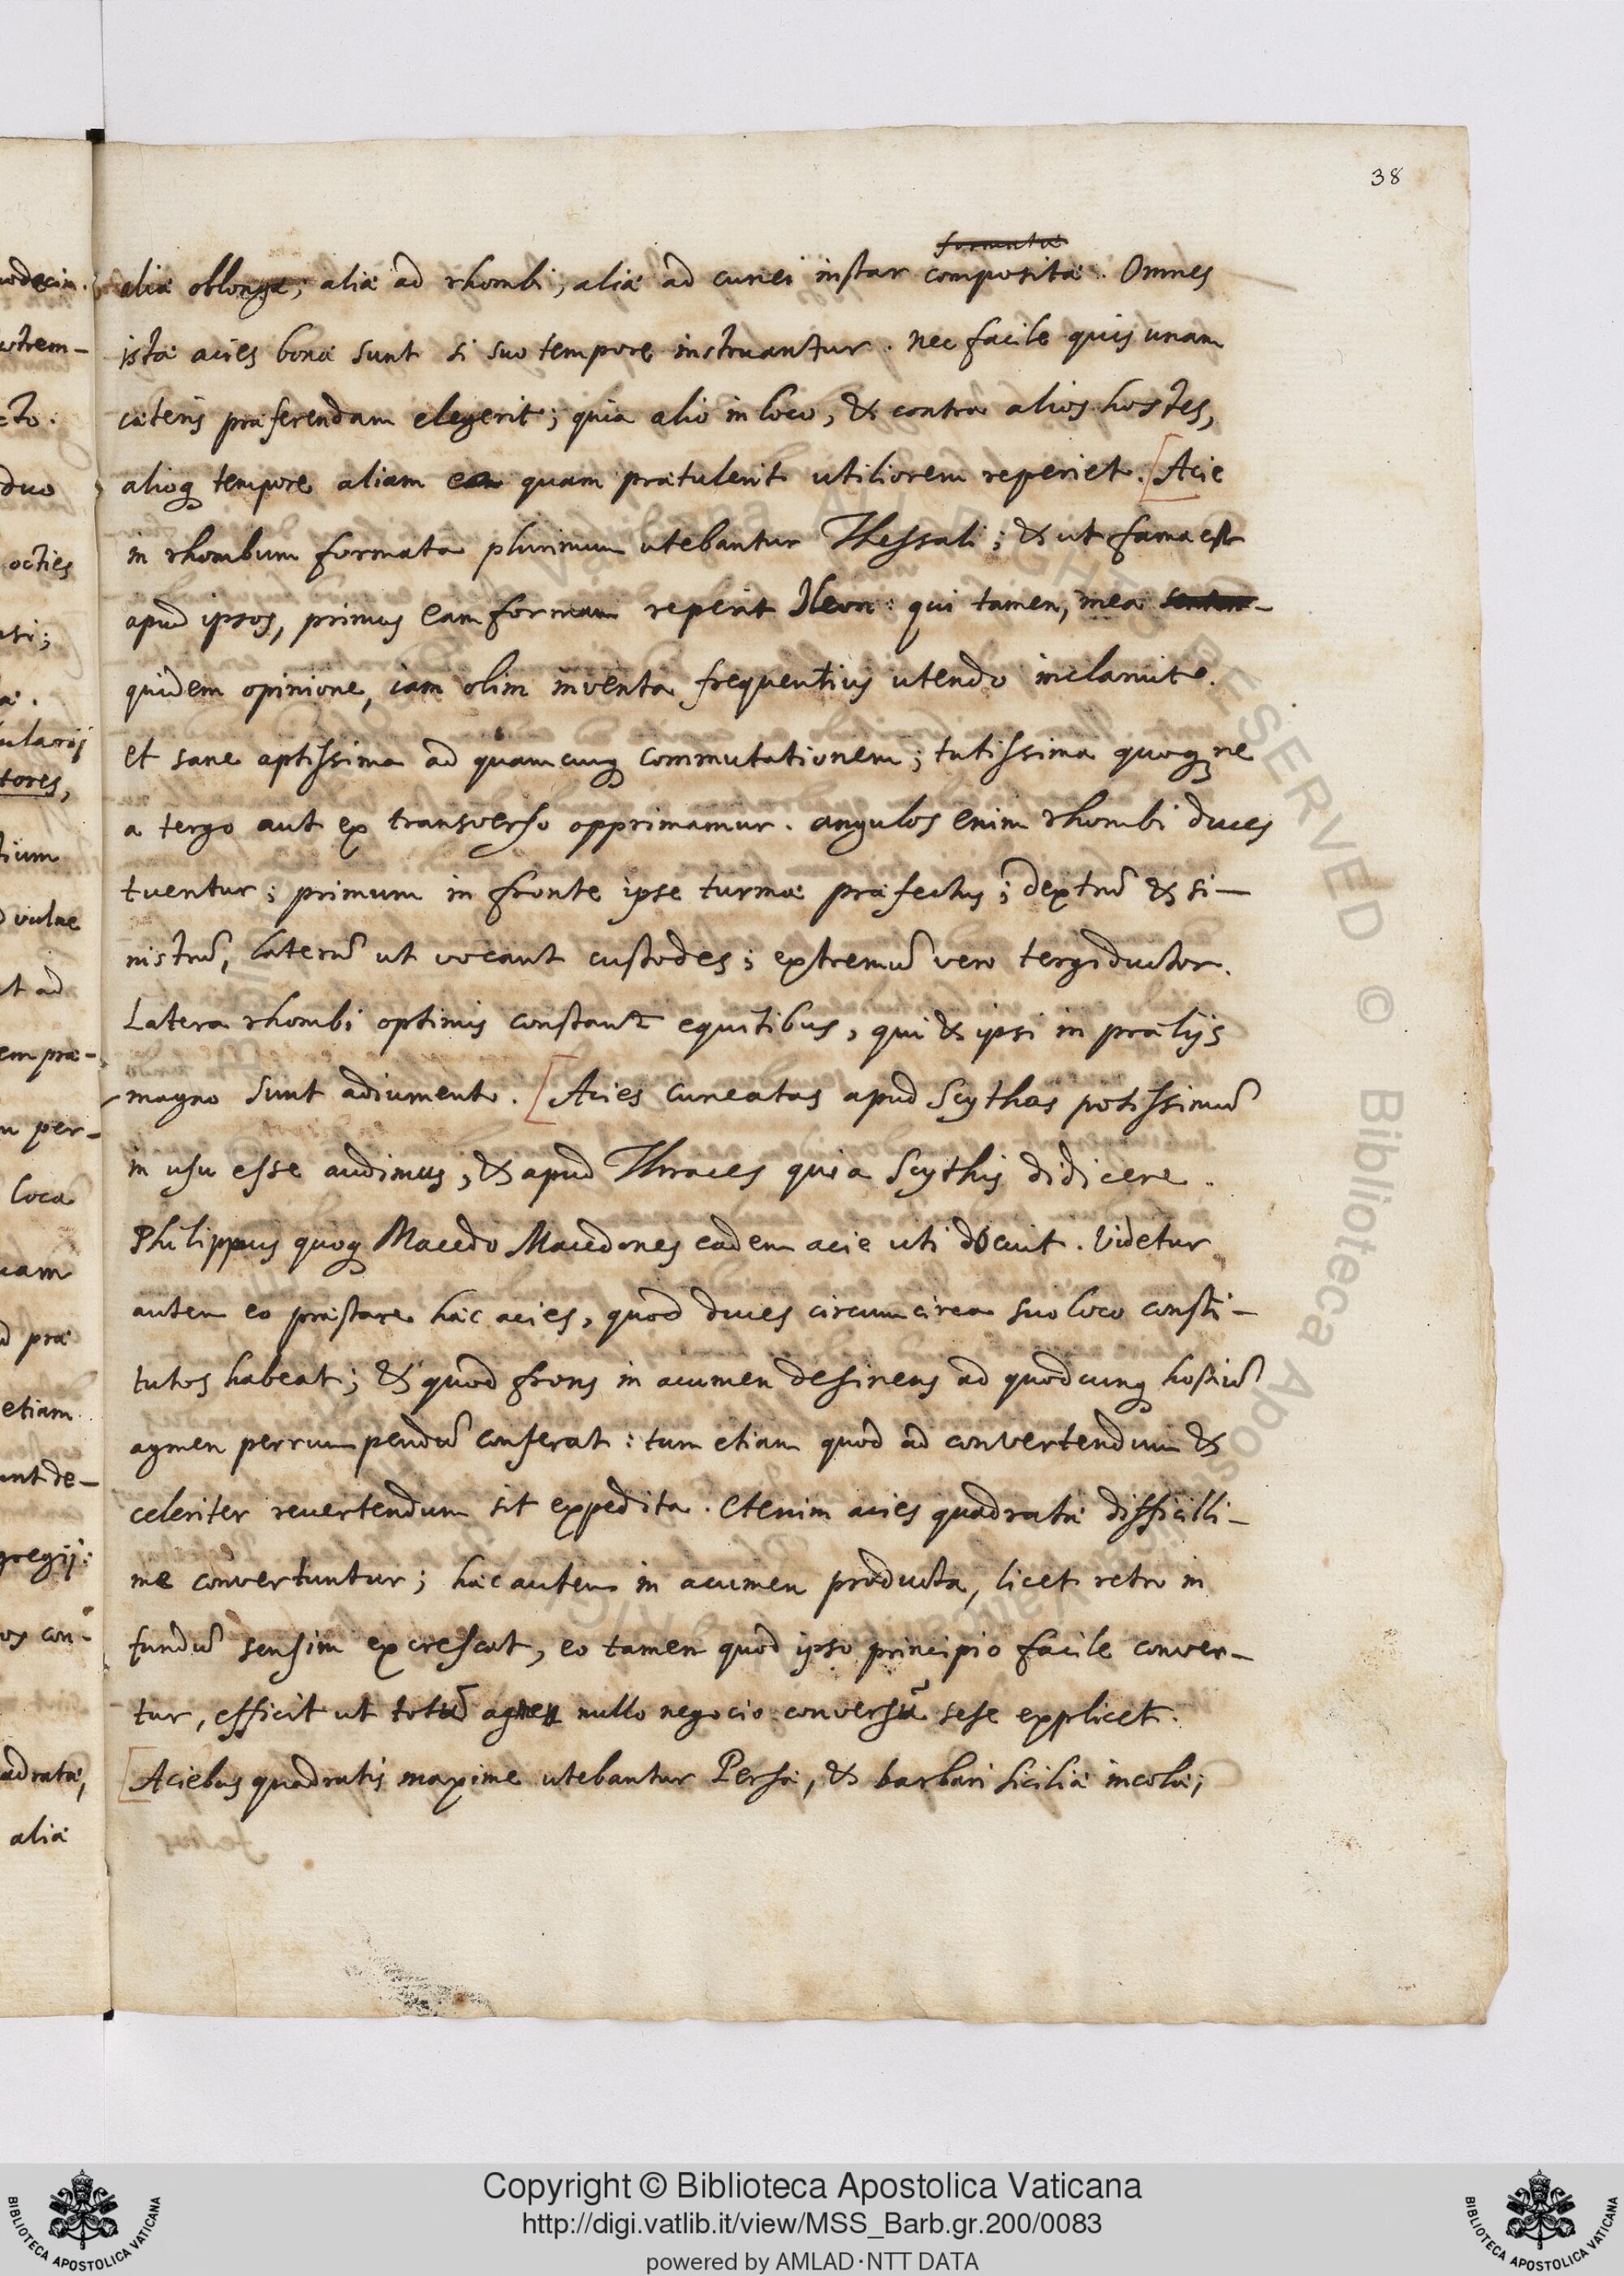 38
formatæ
aliæ oblongæ; aliæ ad rhombi; aliæ ad cunei instar compositæ. Omnes
istæ acies bonæ sunt si suo tempore instruantur. nec facile quis unam
cæteris præferendam elegerit; quia alio in loco, & contra alios hostes,
alioq tempore aliam quam prætulerit utiliorem reperiet. [Acie
in rhombum formata plurimum utebantur Thessali; & ut fama est
apud ipsos, primus eam formam reperit Ileon: qui tamen, mea
quidem opinione, iam olim inventa frequentius utendo inclaruit.
et sane aptissima ad quamcunq commutationem; tutissima quoq ne
a tergo aut ex transverso opprimamur. angulos enim rhombi duces
tuentur; primum in fronte ipse turmæ præfectus; dextrũ & si-
nistrũ, laterũ ut vocant custodes; extremũ vero tergiductor.
Latera rhombi optimis constant equitibus, qui & ipsi in prælijs
magno sunt adiumento. [Acies cuneatas apud Scythas potissimũ
in usu esse audimus, & apud Thraces qui a Scythis didicere.
Philippus quoq Macedo Macedones eadem acie uti docuit. Videtur
autem eo præstare hæc acies, quod duces circumcirca suo loco consti-
tutos habeat; & quod frons in acumen desinens ad quodcunq hostiũ
agmen perrumpendũ conferat: tum etiam quod ad convertendum &
celeriter revertendum sit expedita. Etenim acies quadratæ difficilli-
me convertuntur; hæc autem in acumen producta, licet retro in
fundũ sensim excrescat, eo tamen quod ipso principio facile conver-
tur, efficit ut totũ agmen nullo negocio conversũ sese explicet.
[Aciebus quadratis maxime utebantur Persæ, & barbari Siciliæ incolæ;
uodecim.
cto.
duo
octies
tores,
tium
vulne
ut ad
em præ-
per-
loca
etiam
unt de-
gregij:
os con-
adratæ,
aliæ
Copyright © Biblioteca Apostolica Vaticana
http://digi.vatlib.it/view/MSS_Barb.gr.200/0083
powered by AMLAD·NTT DATA
BIBLIOTECA APOSTOLICA VATICANA
BIBLIOTECA APOSTOLICA VATICANA